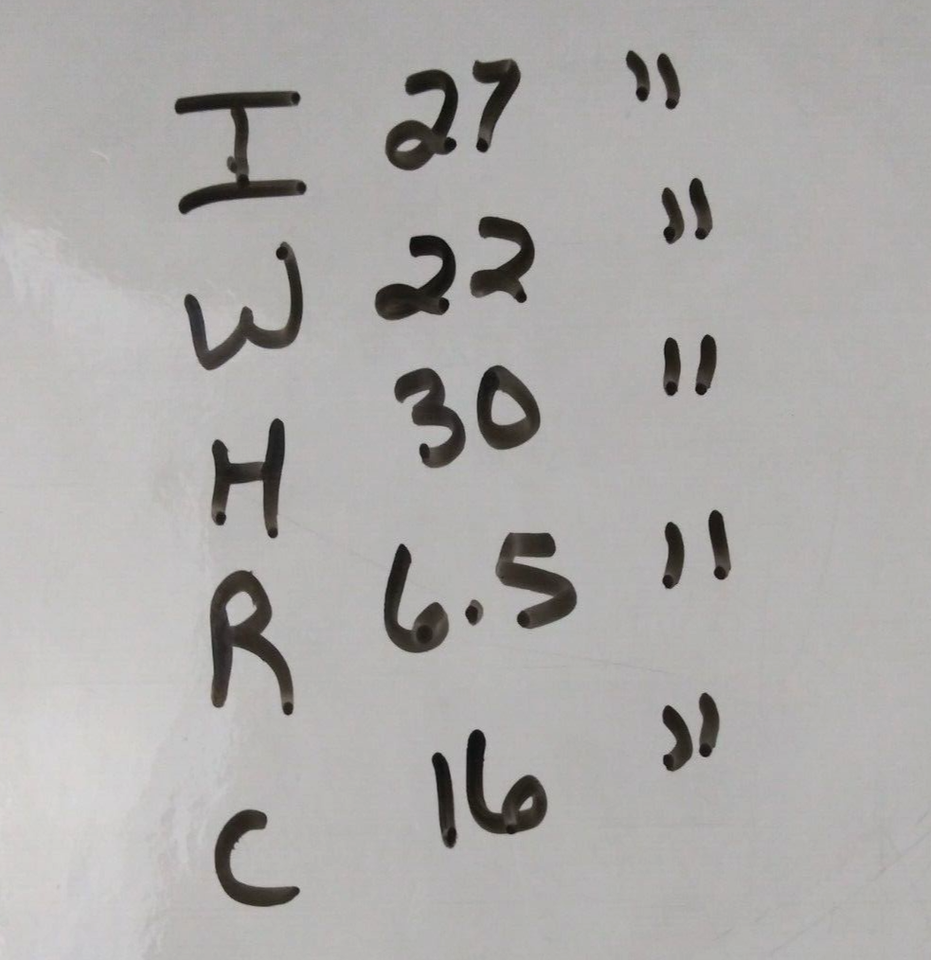 I 27 "
W 22 "
H 30 "
R 6.5 "
C 16 "